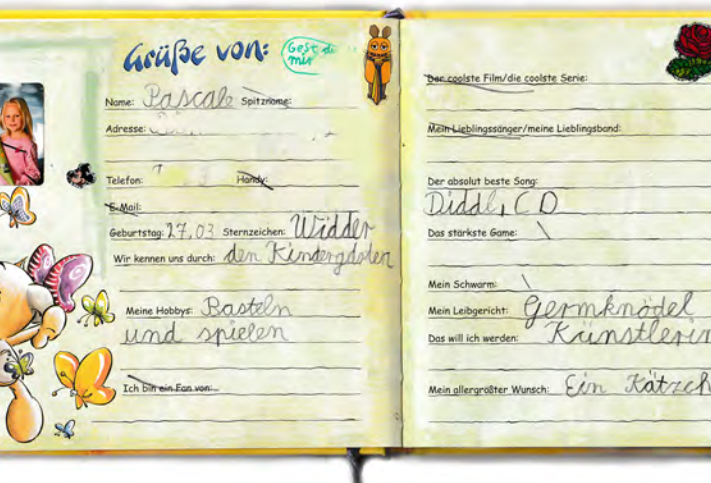 Grüße von:
Gest du
mir
Name: Pascale Spitzname:
Adresse:
Telefon: Handy:
E-Mail:
Geburtstag: 27.03 Sternzeichen: Widder
Wir kennen uns durch: den Kindergdaten
Meine Hobbys: Basteln
und spielen
Ich bin ein Fan von:
Der coolste Film/die coolste Serie:
Mein Lieblingssänger/meine Lieblingsband:
Der absolut beste Song:
Diddl, CD
Das stärkste Game:
Mein Schwarm:
Mein Leibgericht: Germknödel
Das will ich werden: Künstlerin
Mein allergrößter Wunsch: Ein Kätzch